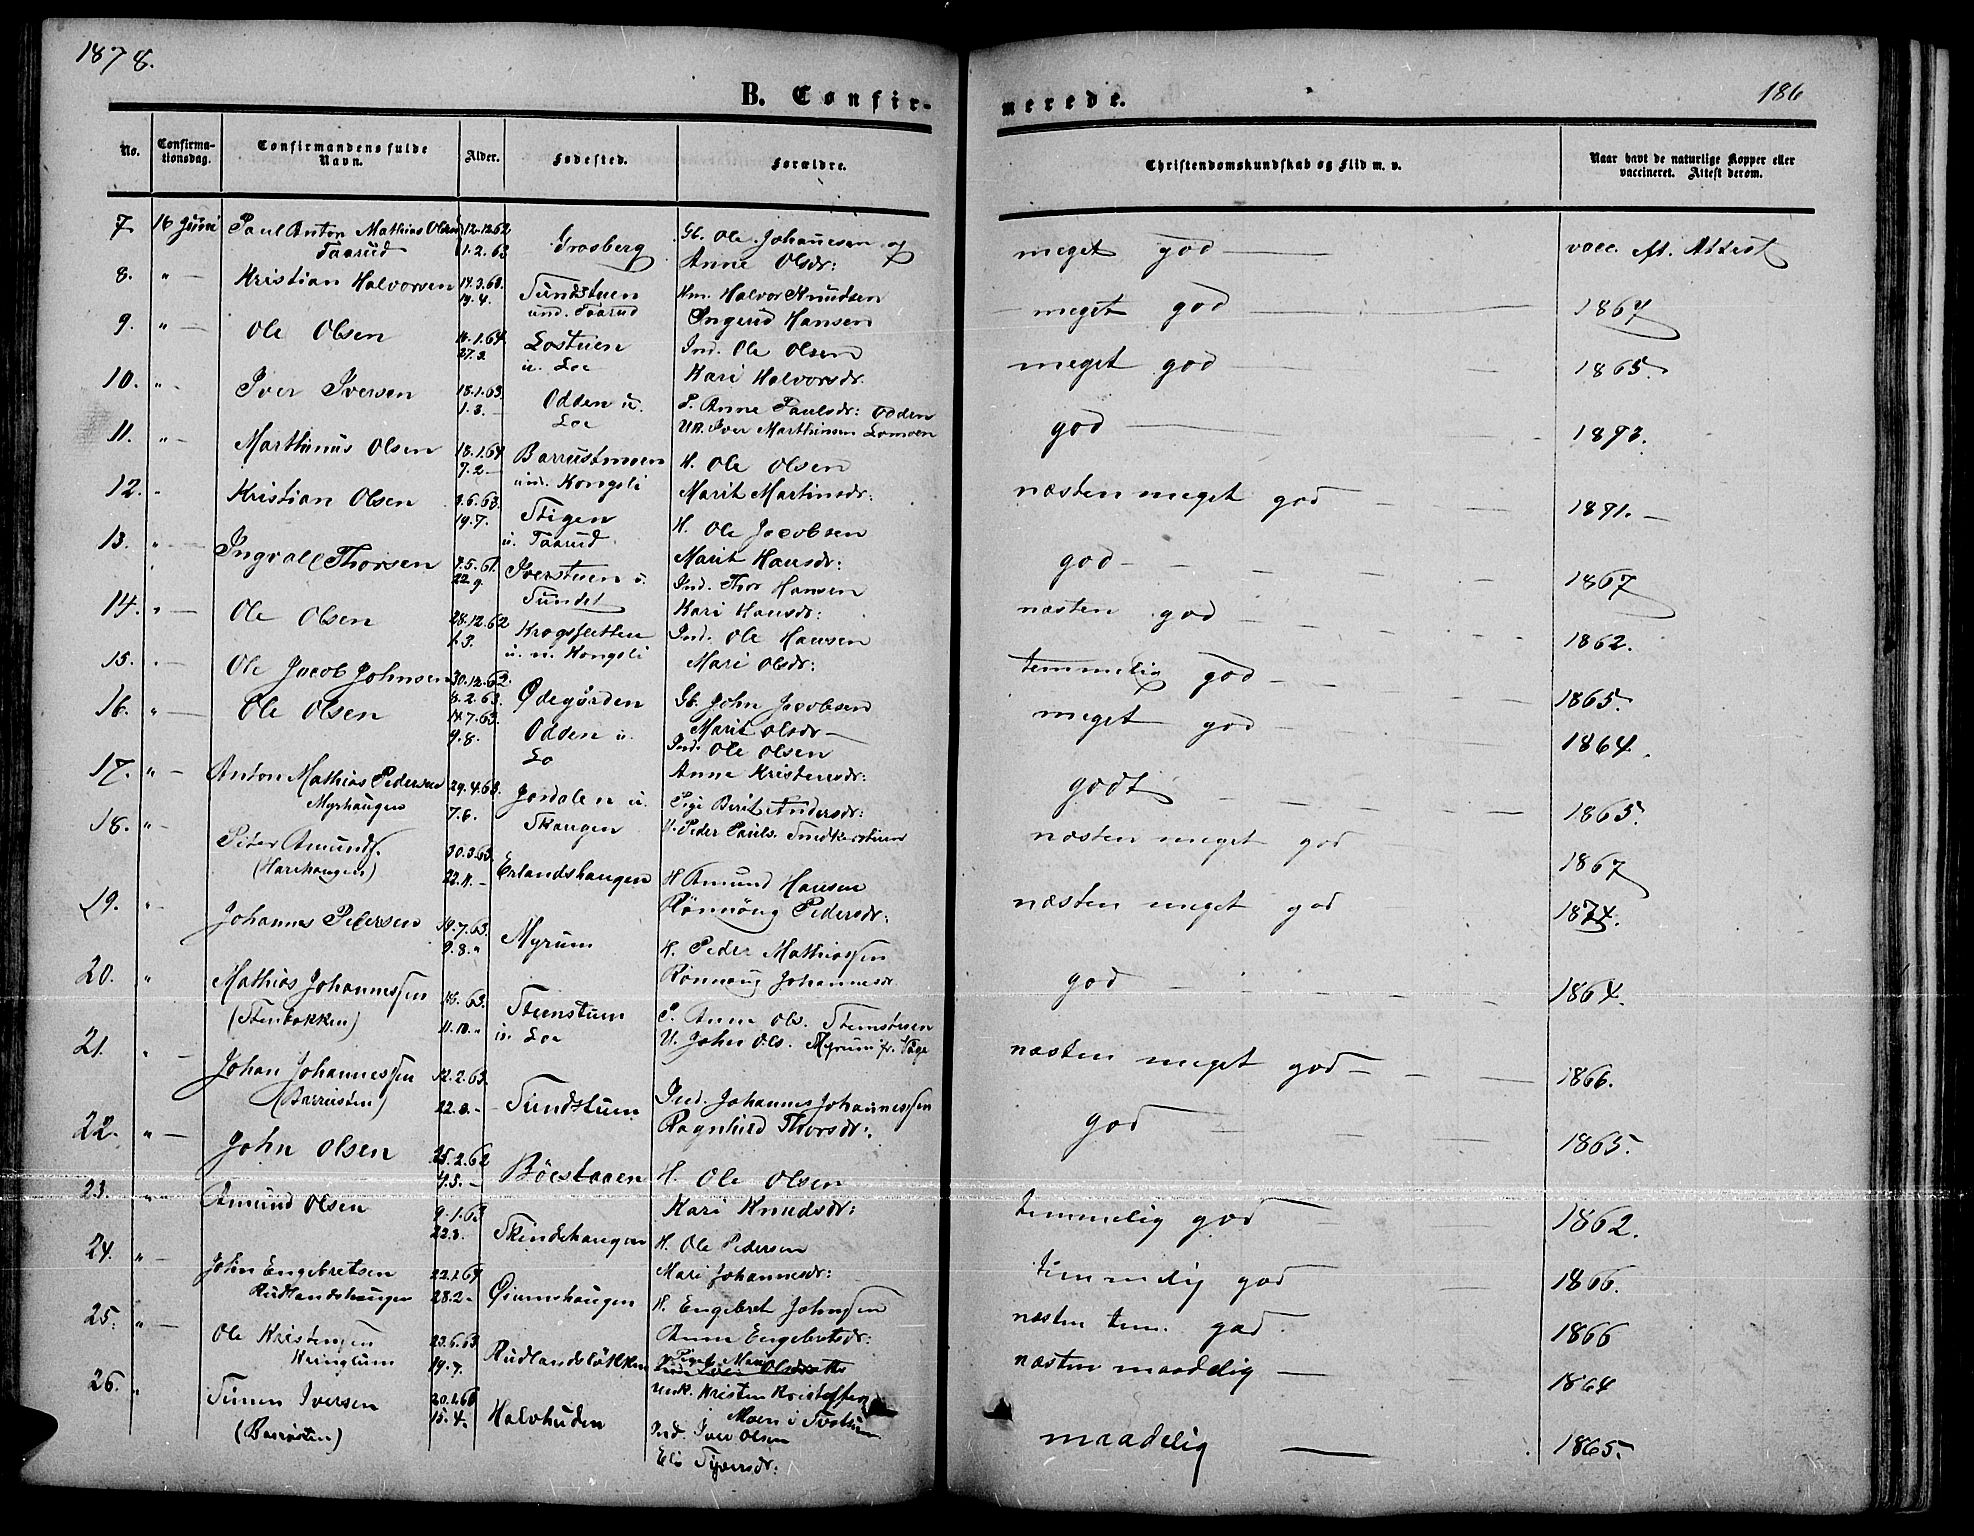 1878.
186
B. Confirmerede.
No.
Confirmationsdag.
Confirmandens fulde Navn.
Alder.
Fødested.
Forældre.
Christendomskundskab og Flid m. v.
Naar havt de naturlige Kopper eller vaccineret. Attest derom.
7 16 Juni Paul Anton Mathias Olsen 12.12.62 Grosberg Gb. Ole Johannesen og meget god vacc. efl. Attest
Taarud 1.2.63 Anne Olsdr:
8. " Kristian Halvorsen 14.3.63 Sundstuen Hm. Halvor Knudsen meget god 1867
19.4. und. Taarud Ingerid Hansen
9. " Ole Olsen 11.1.64 Lostuen Ind. Ole Olsen meget god 1865
27.3. u. Loe Kari Halvorsdr.
10. " Iver Iversen 18.1.63 Odden u. P. Anne Paulsdr: Odden god 1873.
1.3. Loe Uk. Iver Marthinsen Lomoen
11. " Marthinus Olsen 18.1.64 Barrustmoen H. Ole Olsen næsten meget god 1871.
7.2 und. Kongsli Marit Martinsdr:
12. " Kristian Olsen 3.6.63 Stigen H. Ole Jacobsen god 1867
19.7. u. Taarud Marit Hansdr:
13. " Ingvall Thorsen 7.5.61 Iverstuen u. Ind. Thor Hansen næsten god 1862.
22.9. Sundet Kari Hansdr:
14. " Ole Olsen 28.12.62 Krogsletten Ind. Ole Hansen temmelig god 1865.
1.3. u. n. Kongsli Mari Olsdr:
15. " Ole Jacob Johnsen 30.12.62. Ødegården Gb. John Jacobsen meget god 1864.
8.2.63. Marit Olsdr
16. " Ole Olsen 14.7.63. Odden u. Ind. Ole Olsen godt 1865.
9.8. Lo Anne Kristensdr:
17. " Anton Mathias Pedersen 29.4.63. Jordalen u. Pige Berit Andersdr: næsten meget god 1867
Myrhaugen 7.6. Skaugen U. Peder Pauls. Snedkerstuen
18. " Peter Amunds. 30.3.63. Erlandshaugen H. Amund Hansen næsten meget god 1874.
(Harehaugen) 22.11. Rönnöug Pedersdr:
19. " Johannes Pedersen 19.7.63. Myrum H. Peder Mathiassen god 1864.
9.8. " Rönnaug Johannesdr.
20. " Mathias Johannessen 63. Steenstuen P. Anne Ols. Stenstuen næsten meget god 1866.
(Stenbakken) 11.10. u. Loe U. John Ols. Myrum fr. Vage
21. " Johan Johannessen 12.2.63. Sundstuen Ind. Johannes Johannessen god 1865.
(Barrusten) 22.3. Ragnhild Thorsdr:
22. " John Olsen 25.2.62 Böestaaen H. Ole Olsen temmelig god 1862.
4.5. Kari Knudsdr:
23. " Amund Olsen 9.1.63 Skindehaugen H. Ole Pedersen temmelig god 1866.
22.3. Mari Johannesdr:
24. " John Engebretsen 22.1.64 Øiumshaugen H. Engebret Johnssen næsten tem. god. 1866
Rudlandshaugen 28.2 Anne Engebretsdr:
25. " Ole Kristensen 23.6.63 Rudlandsløkken P. Mari næsten maadelig 1864
Kringlum 19.7. Uuk. Kristen Kristoffers
Moen i
26. " Simen Iversen 20.1.60 Halvhuden Ind. Iver Olsen maadelig 1865.
(Barrusten) 15.4. Eli Syversdr: